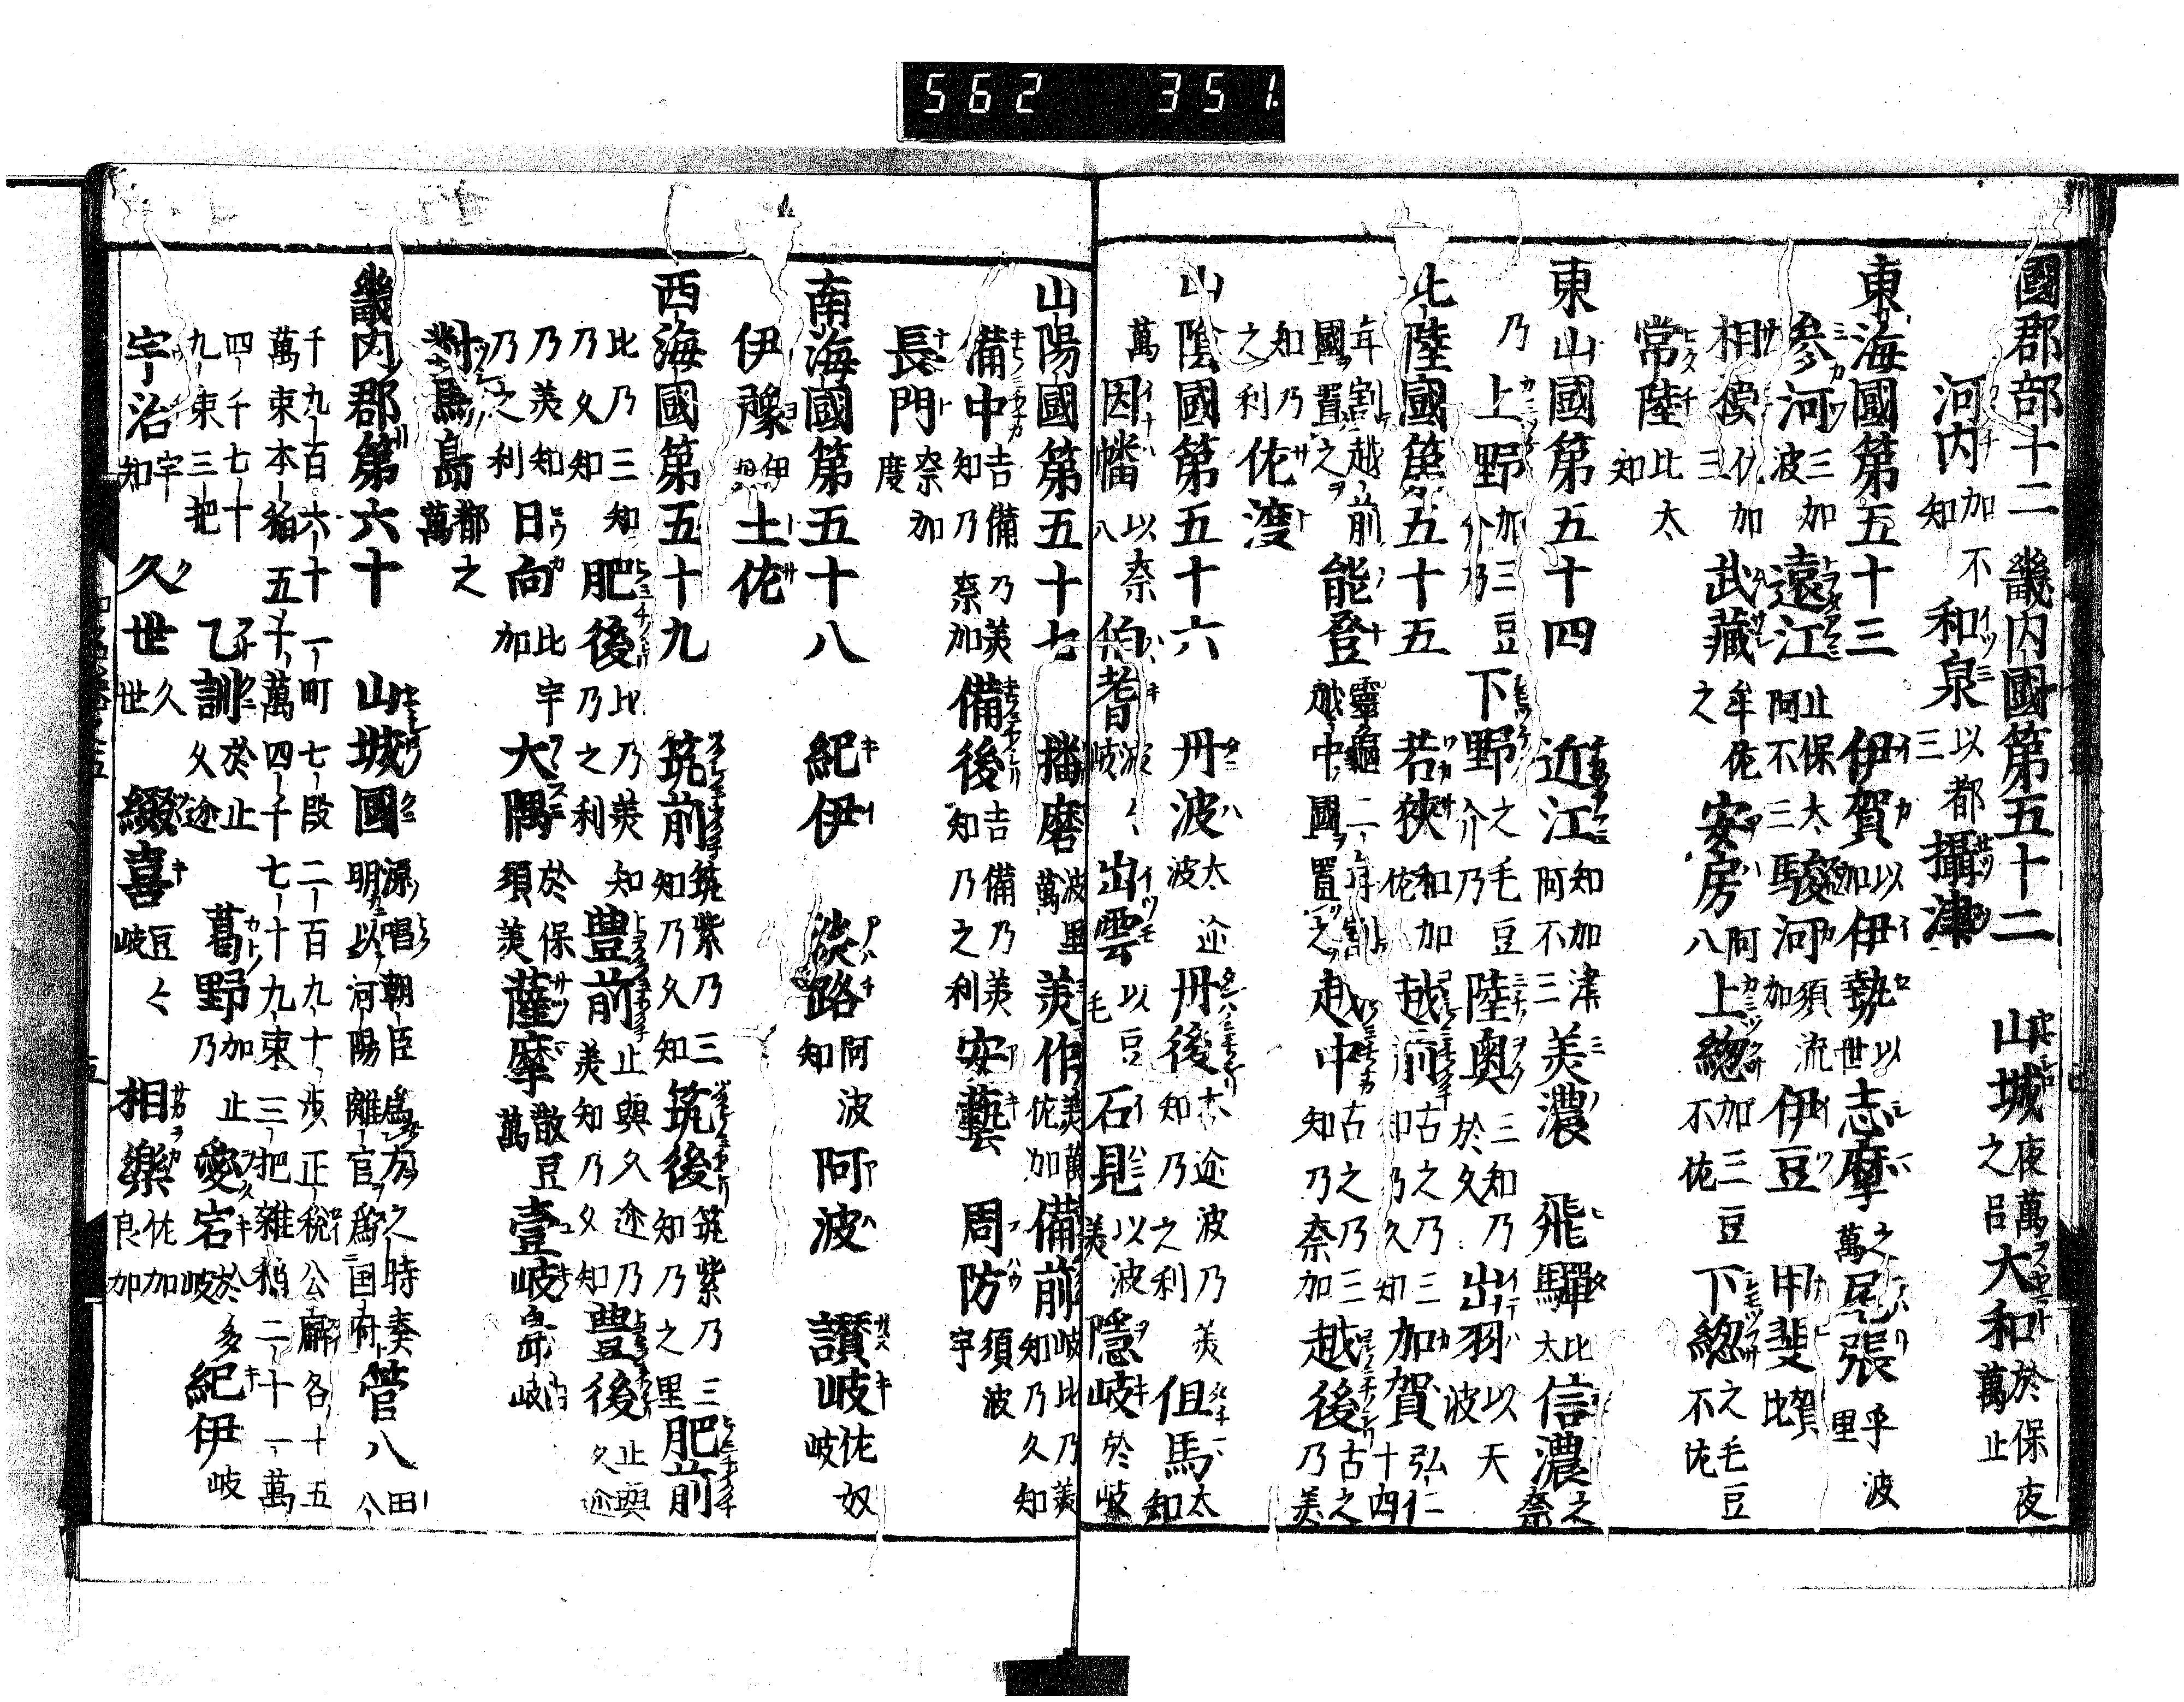 562 351.
國郡部十二 畿内國第五十二 山城夜萬之呂 大和於保夜萬止
河内加不知 和泉以都三 攝津
東海國第五十三 伊賀以加 伊勢以世 志摩之萬 尾張乎波里
參河三加波 遠江止保太阿不三 駿河須流加 伊豆 甲斐
相模 武藏牟佐之 安房阿八 上總加三豆不佐 下總之毛豆不佐
常陸比太知
東山國第五十四 近江知加津阿不三 美濃 飛驒比太 信濃之奈
乃 上野加三豆介乃 下野之毛豆介乃 陸奥三知乃於久 出羽以天波
北陸國第五十五 若狹和加佐 越前古之乃三知乃久知 加賀弘仁十四
年割越前國置之 能登靈龜二年割越中國置之 越中古之乃三知乃奈加 越後古之乃美
知乃之利 佐渡
山陰國第五十六 丹波太迩波 丹後太迩波乃美知乃之利 但馬太知
萬 因幡以奈八 伯耆波々岐 出雲以豆毛 石見以波美 隱岐於岐
山陽國第五十七 播磨波里萬 美作美萬佐加 備前岐比乃美知乃久知
備中吉備乃美知乃奈加 備後吉備乃美知乃之利 安藝 周防須波宇
長門奈加度
南海國第五十八 紀伊 淡路阿波知 阿波 讃岐佐奴岐
伊豫伊 土佐
西海國第五十九 筑前筑紫乃三知乃久知 筑後筑紫乃三知乃之里 肥前
比乃三知乃久知 肥後比乃美知乃之利 豊前止與久迩乃美知乃久知 豊後止與久迩
乃美知乃之利 日向比宇加 大隅於保須美 薩摩散豆萬 壹岐
對馬島都之萬
畿内郡第六十 山城國源唱朝臣爲之時奏明以河陽離宮爲国府 管八田
千九百六十一町七段二百九十歩正税公廨各十五
萬束本稲五十萬四千七十九束三把雜稲二十一萬
四千七十九束三把 乙訓於止久迩 葛野加止乃 愛宕於多岐 紀伊岐
宇治宇知 久世久世 綴喜豆々岐 相樂佐加良加